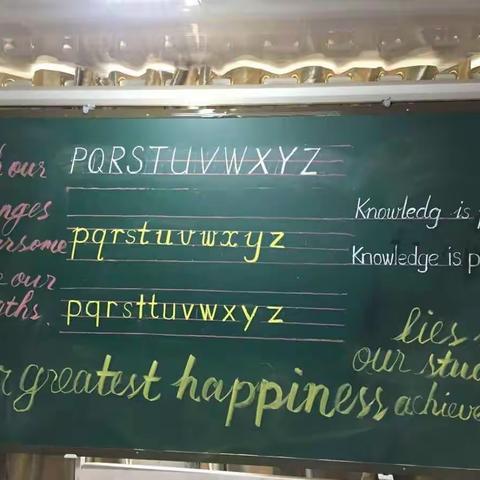 our
nges
rsome
our
aths.
PQRSTUVWXYZ
pqrstuvwxyz
pqrsttuvwxyz
Knowledg is p
Knowledge is p
lies
our stu
r greatest happiness achieve